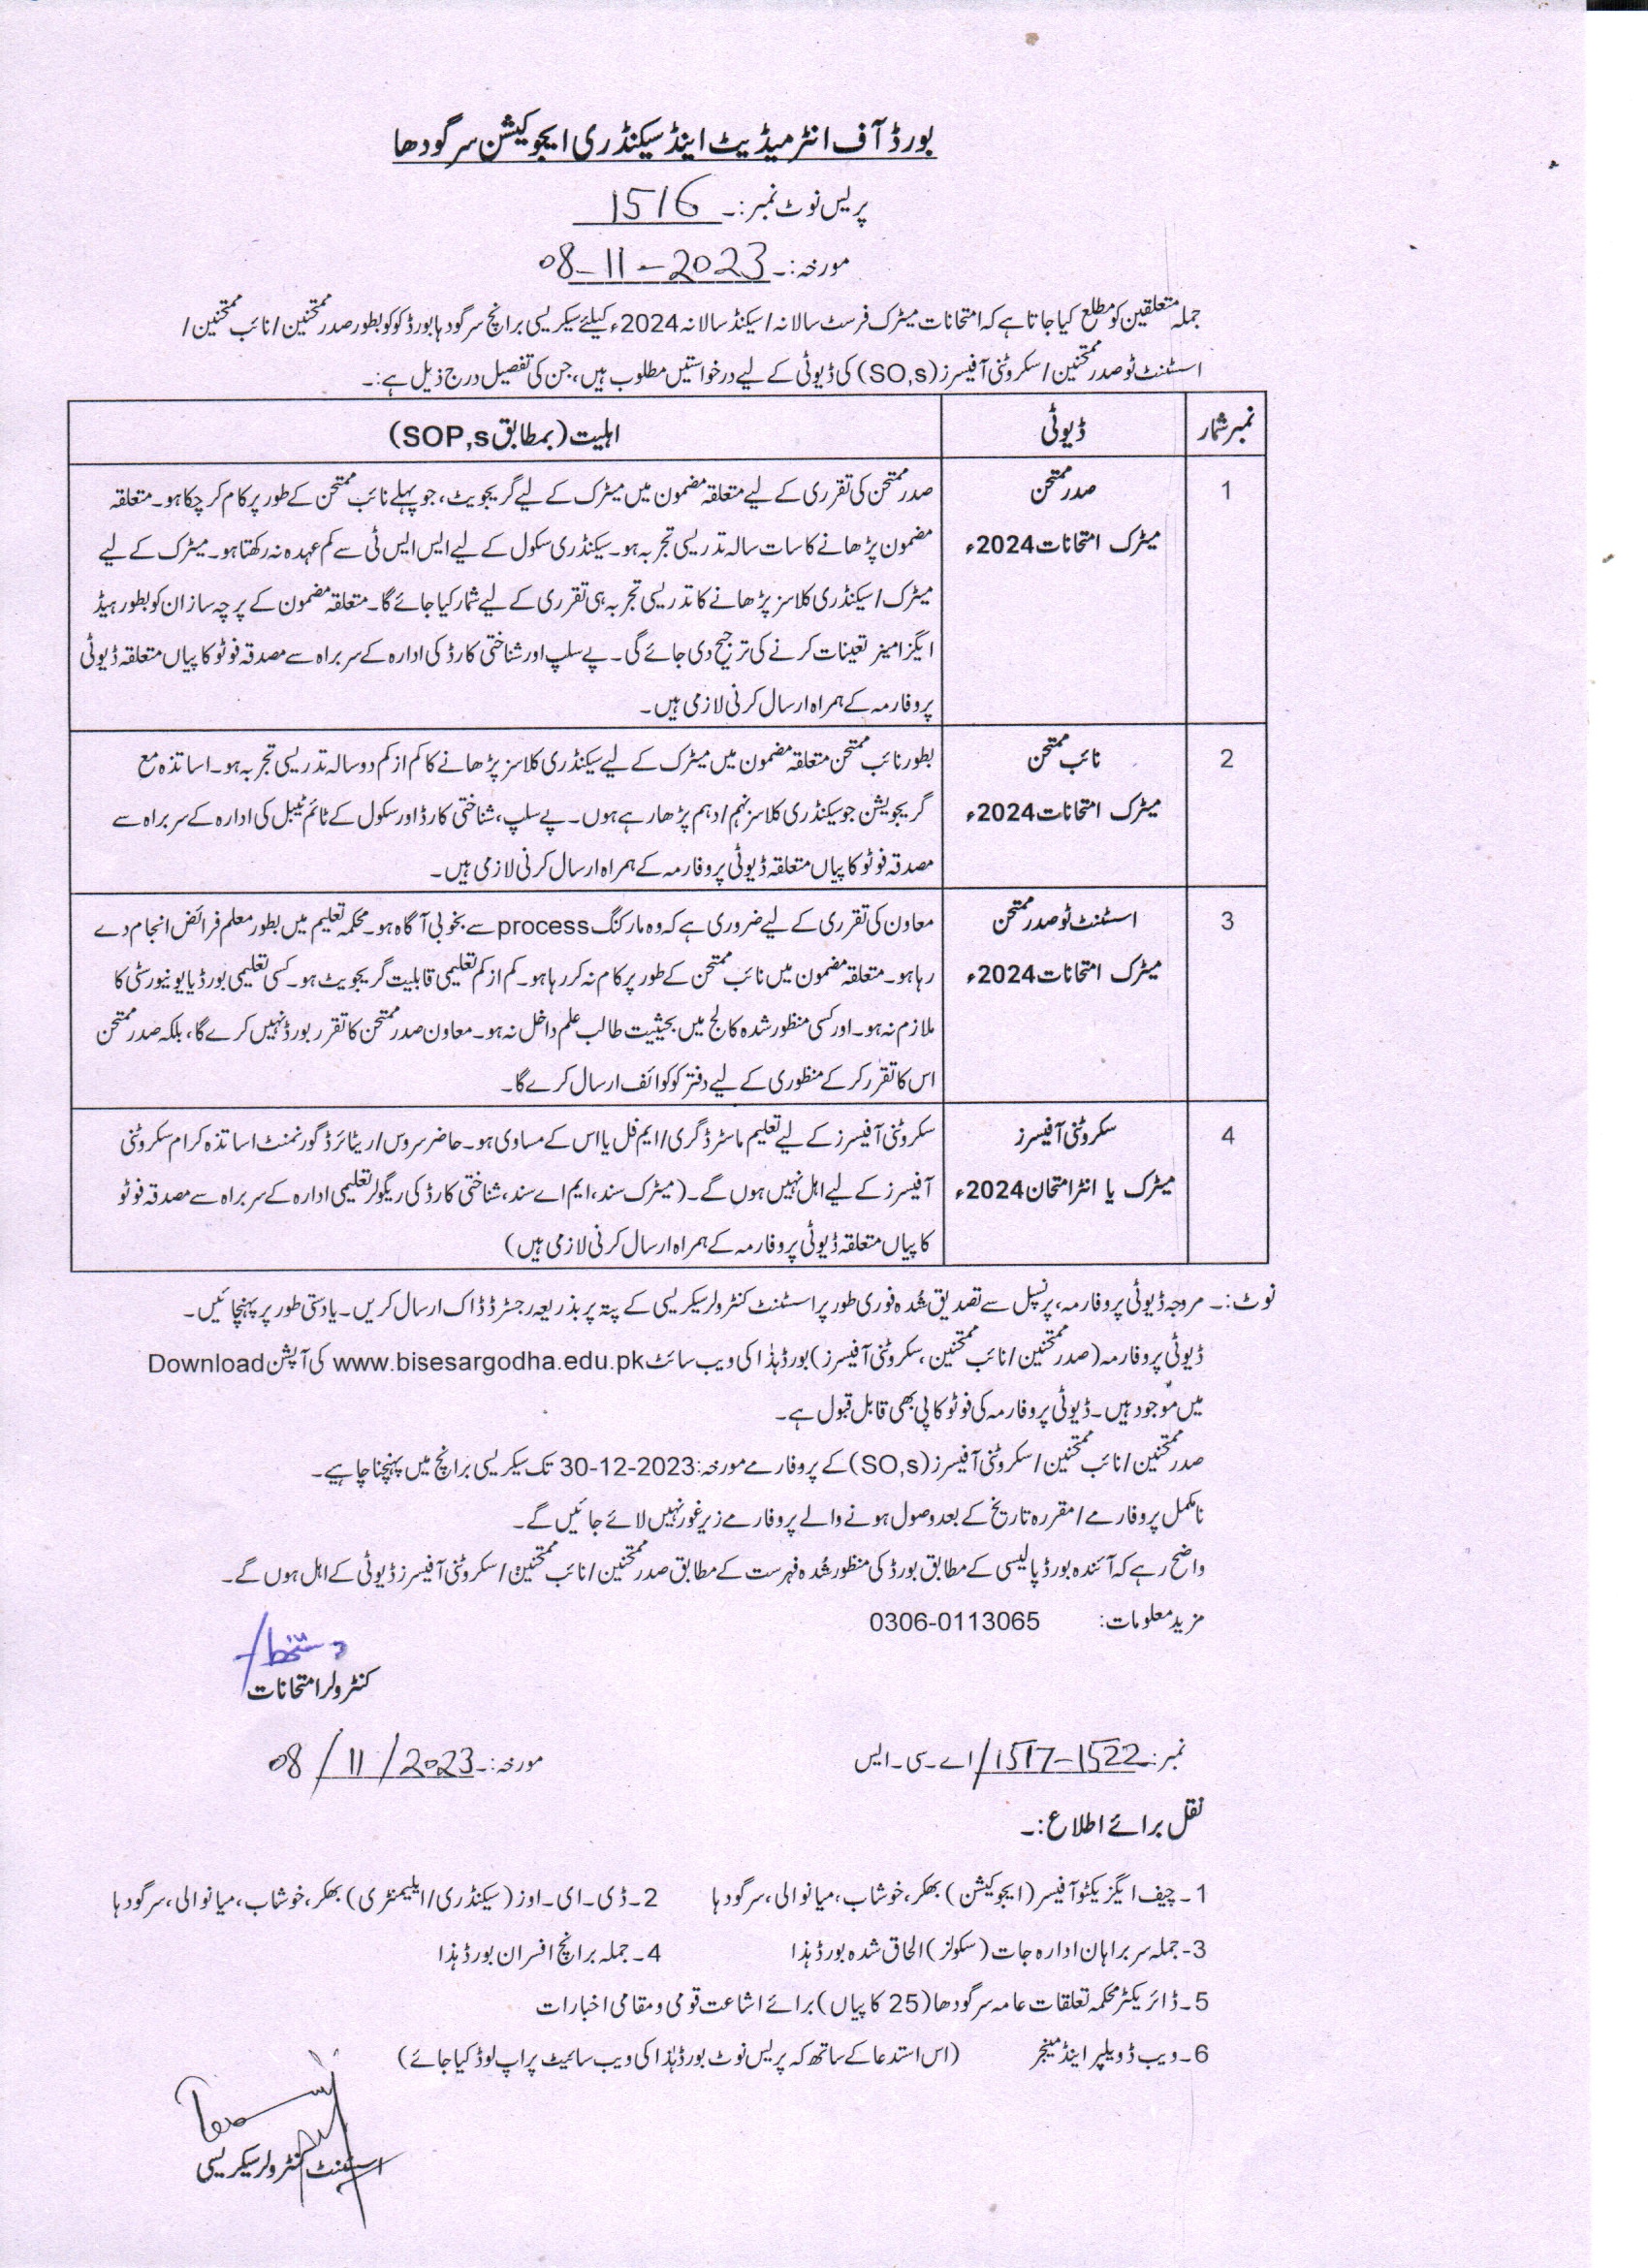 بورڈ آف انٹرمیڈیٹ اینڈ سیکنڈری ایجوکیشن سرگودھا
پریس نوٹ نمبر:۔ 1516
مورخہ:۔ 08-11-2023
جملہ متعلقین کو مطلع کیا جاتا ہے کہ امتحانات میٹرک فرسٹ سالانہ/سیکنڈ سالانہ 2024ء کیلئے سیکریسی برانچ سرگودہا بورڈ کو کو بطور صدر ممتحنین/نائب ممتحنین/
اسسٹنٹ ٹو صدر ممتحنین/سکروٹنی آفیسرز (SO,s) کی ڈیوٹی کے لیے درخواستیں مطلوب ہیں، جن کی تفصیل درج ذیل ہے:۔
نمبر شمار ڈیوٹی اہلیت (بمطابق SOP,s)
1 صدر ممتحن صدر ممتحن کی تقرری کے لیے متعلقہ مضمون میں میٹرک کے لیے گریجویٹ، جو پہلے نائب ممتحن کے طور پر کام کر چکا ہو۔ متعلقہ
میٹرک امتحانات 2024ء مضمون پڑھانے کا سات سالہ تدریسی تجربہ ہو۔ سیکنڈری سکول کے لیے ایس ایس ٹی سے کم عہدہ نہ رکھتا ہو۔ میٹرک کے لیے
میٹرک/سیکنڈری کلاسز پڑھانے کا تدریسی تجربہ ہی تقرری کے لیے شمار کیا جائے گا۔ متعلقہ مضمون کے پرچہ سازان کو بطور ہیڈ
ایگزامینر تعینات کرنے کی ترجیح دی جائے گی۔ پے سلپ اور شناختی کارڈ کی ادارہ کے سربراہ سے مصدقہ فوٹو کاپیاں متعلقہ ڈیوٹی
پروفارمہ کے ہمراہ ارسال کرنی لازمی ہیں۔
2 نائب ممتحن بطور نائب ممتحن متعلقہ مضمون میں میٹرک کے لیے سیکنڈری کلاسز پڑھانے کا کم از کم دو سالہ تدریسی تجربہ ہو۔ اساتذہ مع
میٹرک امتحانات 2024ء گریجویشن جو سیکنڈری کلاسز نہم/دہم پڑھا رہے ہوں۔ پے سلپ، شناختی کارڈ اور سکول کے ٹائم ٹیبل کی ادارہ کے سربراہ سے
مصدقہ فوٹو کاپیاں متعلقہ ڈیوٹی پروفارمہ کے ہمراہ ارسال کرنی لازمی ہیں۔
3 اسسٹنٹ ٹو صدر ممتحن معاون کی تقرری کے لیے ضروری ہے کہ وہ مارکنگ process سے بخوبی آگاہ ہو۔ محکمہ تعلیم میں بطور معلم فرائض انجام دے
میٹرک امتحانات 2024ء رہا ہو۔ متعلقہ مضمون میں نائب ممتحن کے طور پر کام نہ کر رہا ہو۔ کم از کم تعلیمی قابلیت گریجویٹ ہو۔ کسی تعلیمی بورڈ یا یونیورسٹی کا
ملازم نہ ہو۔ اور کسی منظور شدہ کالج میں بحیثیت طالب علم داخل نہ ہو۔ معاون صدر ممتحن کا تقرر بورڈ نہیں کرے گا، بلکہ صدر ممتحن
اس کا تقرر کر کے منظوری کے لیے دفتر کو کوائف ارسال کرے گا۔
4 سکروٹنی آفیسرز سکروٹنی آفیسرز کے لیے تعلیم ماسٹر ڈگری/ایم فل یا اس کے مساوی ہو۔ حاضر سروس/ریٹائرڈ گورنمنٹ اساتذہ کرام سکروٹنی
میٹرک یا انٹر امتحان 2024ء آفیسرز کے لیے اہل نہیں ہوں گے۔ (میٹرک سند، ایم اے سند، شناختی کارڈ کی ریگولر تعلیمی ادارہ کے سربراہ سے مصدقہ فوٹو
کاپیاں متعلقہ ڈیوٹی پروفارمہ کے ہمراہ ارسال کرنی لازمی ہیں)
نوٹ:۔ مروجہ ڈیوٹی پروفارمہ، پرنسپل سے تصدیق شُدہ فوری طور پر اسسٹنٹ کنٹرولر سیکریسی کے پتہ پر بذریعہ رجسٹرڈ ڈاک ارسال کریں۔ یا دستی طور پر پہنچائیں۔
ڈیوٹی پروفارمہ (صدر ممتحنین/نائب ممتحنین، سکروٹنی آفیسرز) بورڈ ہٰذا کی ویب سائٹ www.bisesargodha.edu.pk کی آپشن Download
میں موجود ہیں۔ ڈیوٹی پروفارمہ کی فوٹو کاپی بھی قابل قبول ہے۔
صدر ممتحنین/نائب ممتحنین/سکروٹنی آفیسرز (SO,s) کے پروفارمے مورخہ: 30-12-2023 تک سیکریسی برانچ میں پہنچنا چاہیے۔
نامکمل پروفارمے/مقررہ تاریخ کے بعد وصول ہونے والے پروفارمے زیر غور نہیں لائے جائیں گے۔
واضح رہے کہ آئندہ بورڈ پالیسی کے مطابق بورڈ کی منظور شُدہ فہرست کے مطابق صدر ممتحنین/نائب ممتحنین/سکروٹنی آفیسرز ڈیوٹی کے اہل ہوں گے۔
مزید معلومات: 0306-0113065
دستخط/-
کنٹرولر امتحانات
نمبر:۔ 1517-1522/اے۔سی۔ایس مورخہ:۔ 08/11/2023
نقل برائے اطلاع:۔
1۔ چیف ایگزیکٹو آفیسر (ایجوکیشن) بھکر، خوشاب، میانوالی، سرگودہا 2۔ ڈی۔ای۔اوز (سیکنڈری/ایلیمنٹری) بھکر، خوشاب، میانوالی، سرگودہا
3- جملہ سربراہان ادارہ جات (سکولز) الحاق شدہ بورڈ ہذا 4۔ جملہ برانچ افسران بورڈ ہذا
5۔ ڈائریکٹر محکمہ تعلقات عامہ سرگودھا (25 کاپیاں) برائے اشاعت قومی و مقامی اخبارات
6۔ ویب ڈویلپر اینڈ مینجر (اس استدعا کے ساتھ کہ پریس نوٹ بورڈ ہٰذا کی ویب سائیٹ پر اپ لوڈ کیا جائے)
اسسٹنٹ کنٹرولر سیکریسی